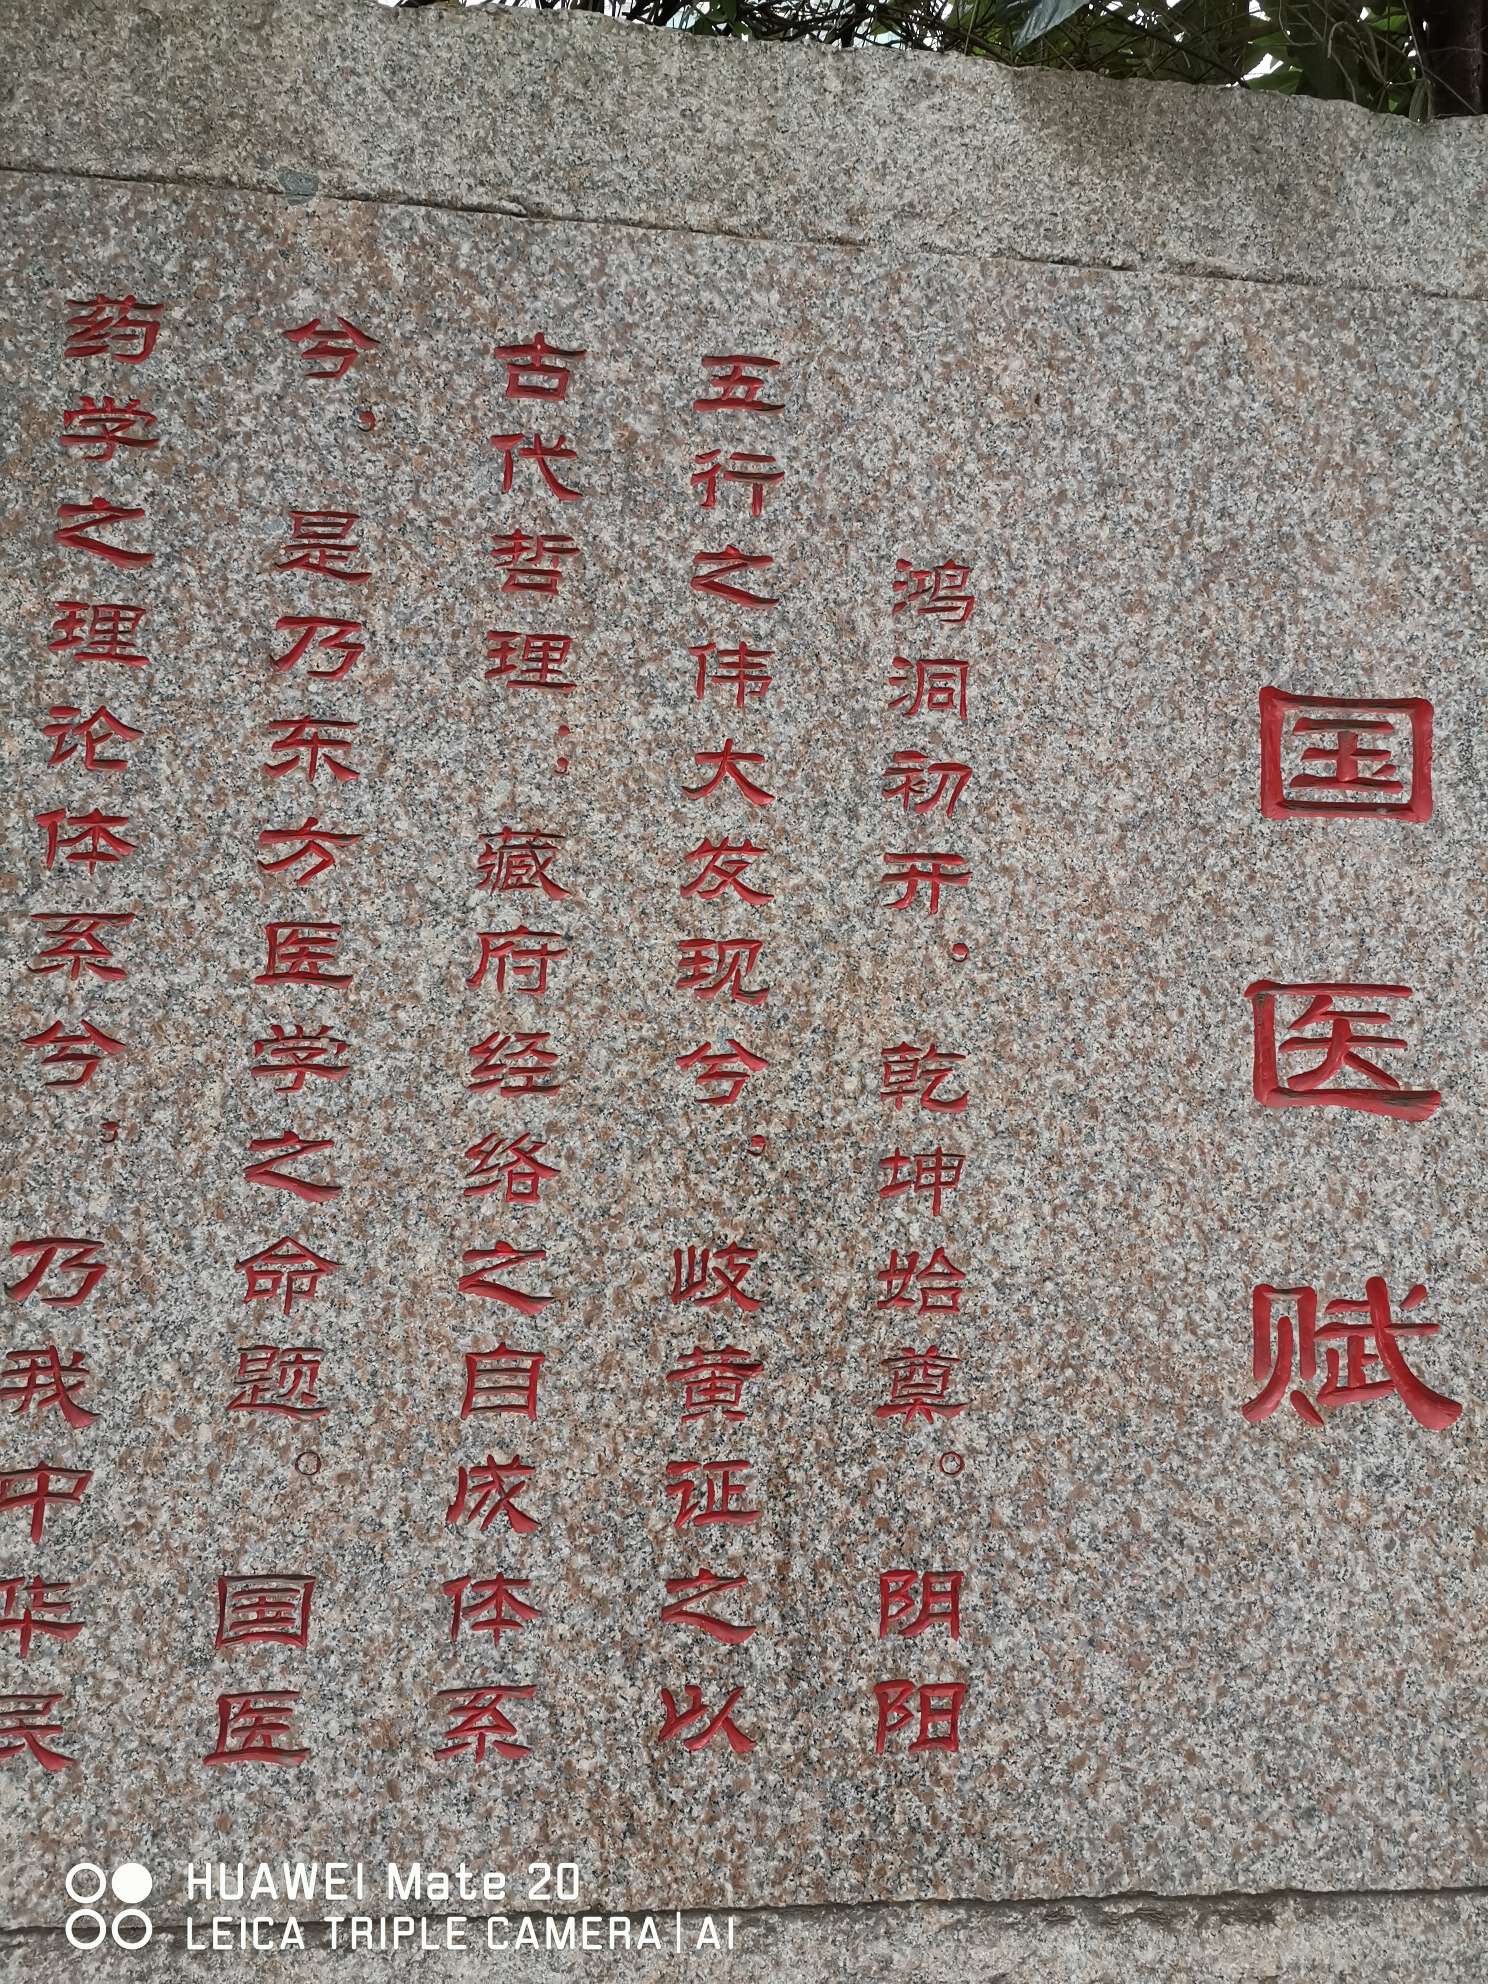 国医赋
鸿洞初开．乾坤始奠。阴阳
五行之伟大发现兮，岐黄证之以
古代哲理；藏府经络之自成体系
兮，是乃东方医学之命题。国医
药学之理论体系兮，乃我中华民
HUAWEI Mate 20
LEICA TRIPLE CAMERA | AI